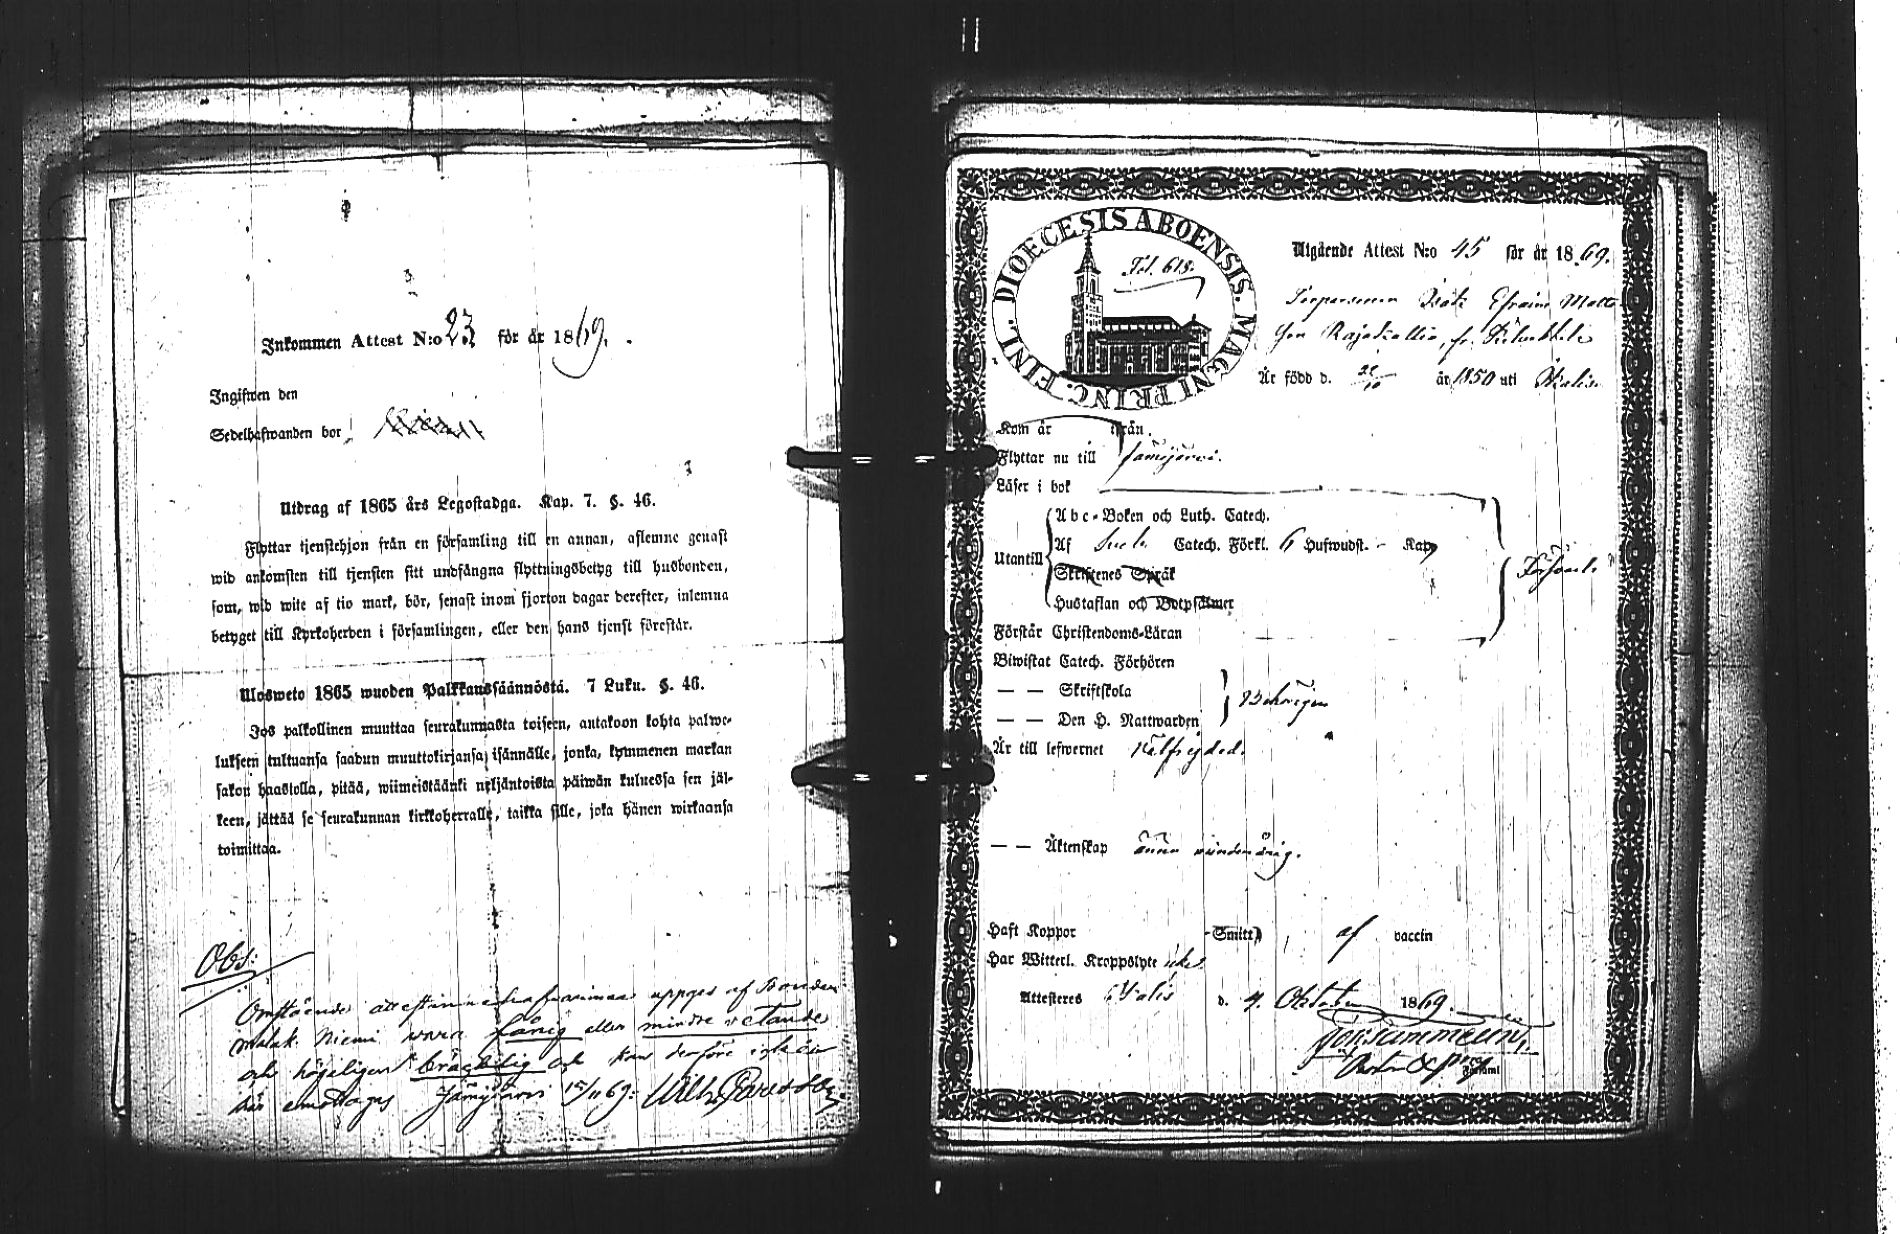 Inkommen Attest N:o 23 för år 1869.
Ingifwen den
Sedelhafwanden bor
Utdrag af 1865 års Legostadga. Kap. 7. §. 46.
Flyttar tjenstehjon från en församling till en annan, aflemne genast
wid ankomsten till tjensten sitt undfångna flyttningsbetyg till husbonden,
som, wid wite af tio mark, bör, senast inom fjorton dagar derefter, inlemna
betyget till Kyrkoherden i församlingen, eller den hans tjenst förestår.
Ulosweto 1865 wuoden Palkkaussäännöstä. 7 Luku. §. 46.
Jos palkollinen muuttaa seurakunnasta toiseen, antakoon kohta palwe-
lukseen tultuansa saadun muuttokirjansa isännälle, jonka, kymmenen markan
sakon haastolla, pitää, wiimeistäänki neljäntoista päiwän kuluessa sen jäl-
keen, jättää se seurakunnan kirkkoherralle, taikka sille, joka hänen wirkaansa
toimittaa.
Obs:
Omstående uppges af Bonden
Niemi vara fånig eller mindre vetande
och höggeligen bråkbelig och kan derföre icke
här emottagas Jämijärvi 15/11 69: Wilh.
DIOECESIS ABOENSIS. MAGNI PRINC. FINL.
Fol. 618.
Utgående Attest N:o 45 för år 1869.
Efraim Matts
son
Är född d. år 1850 uti Ikalis
Kom år från
Flyttar nu till Jämijärvi.
Läser i bok
Abc-Boken och Luth. Catech.
Utantill Af Catech. Förkl. 6 Hufwudst. - Kap
Skriftenes Språk
Hustaflan och Botpsalmer
Förstår Christendoms-Läran
Försvarl.
Biwistat Catech. Förhören
— — Skriftskola
— — Den H. Nattwarden
Behörigen
Är till lefwernet välfrejdad.
— — Äktenskap ännu minderårig.
Haft Koppor Smitt af vaccin
Har Witterl. Kroppslyte icke
Attesteras Ikalis d. 4 Oktober 1869.
Församl